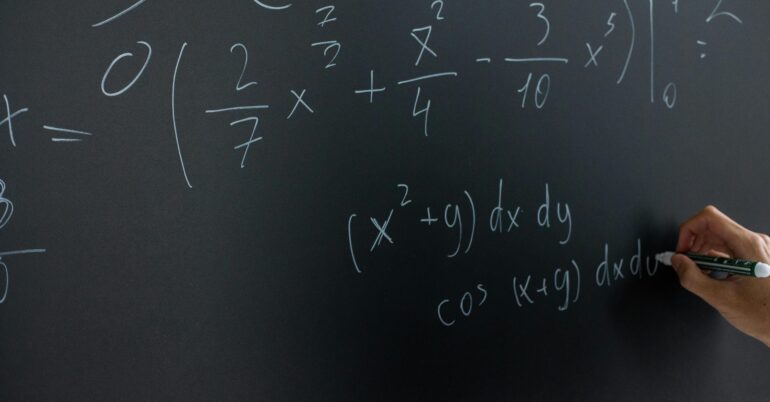 x = 0 ( 2/7 x^(7/2) + x^2/4 - 3/10 x^5 ) |_0 =
3
(x^2 + y) dx dy
cos (x+y) dx dy